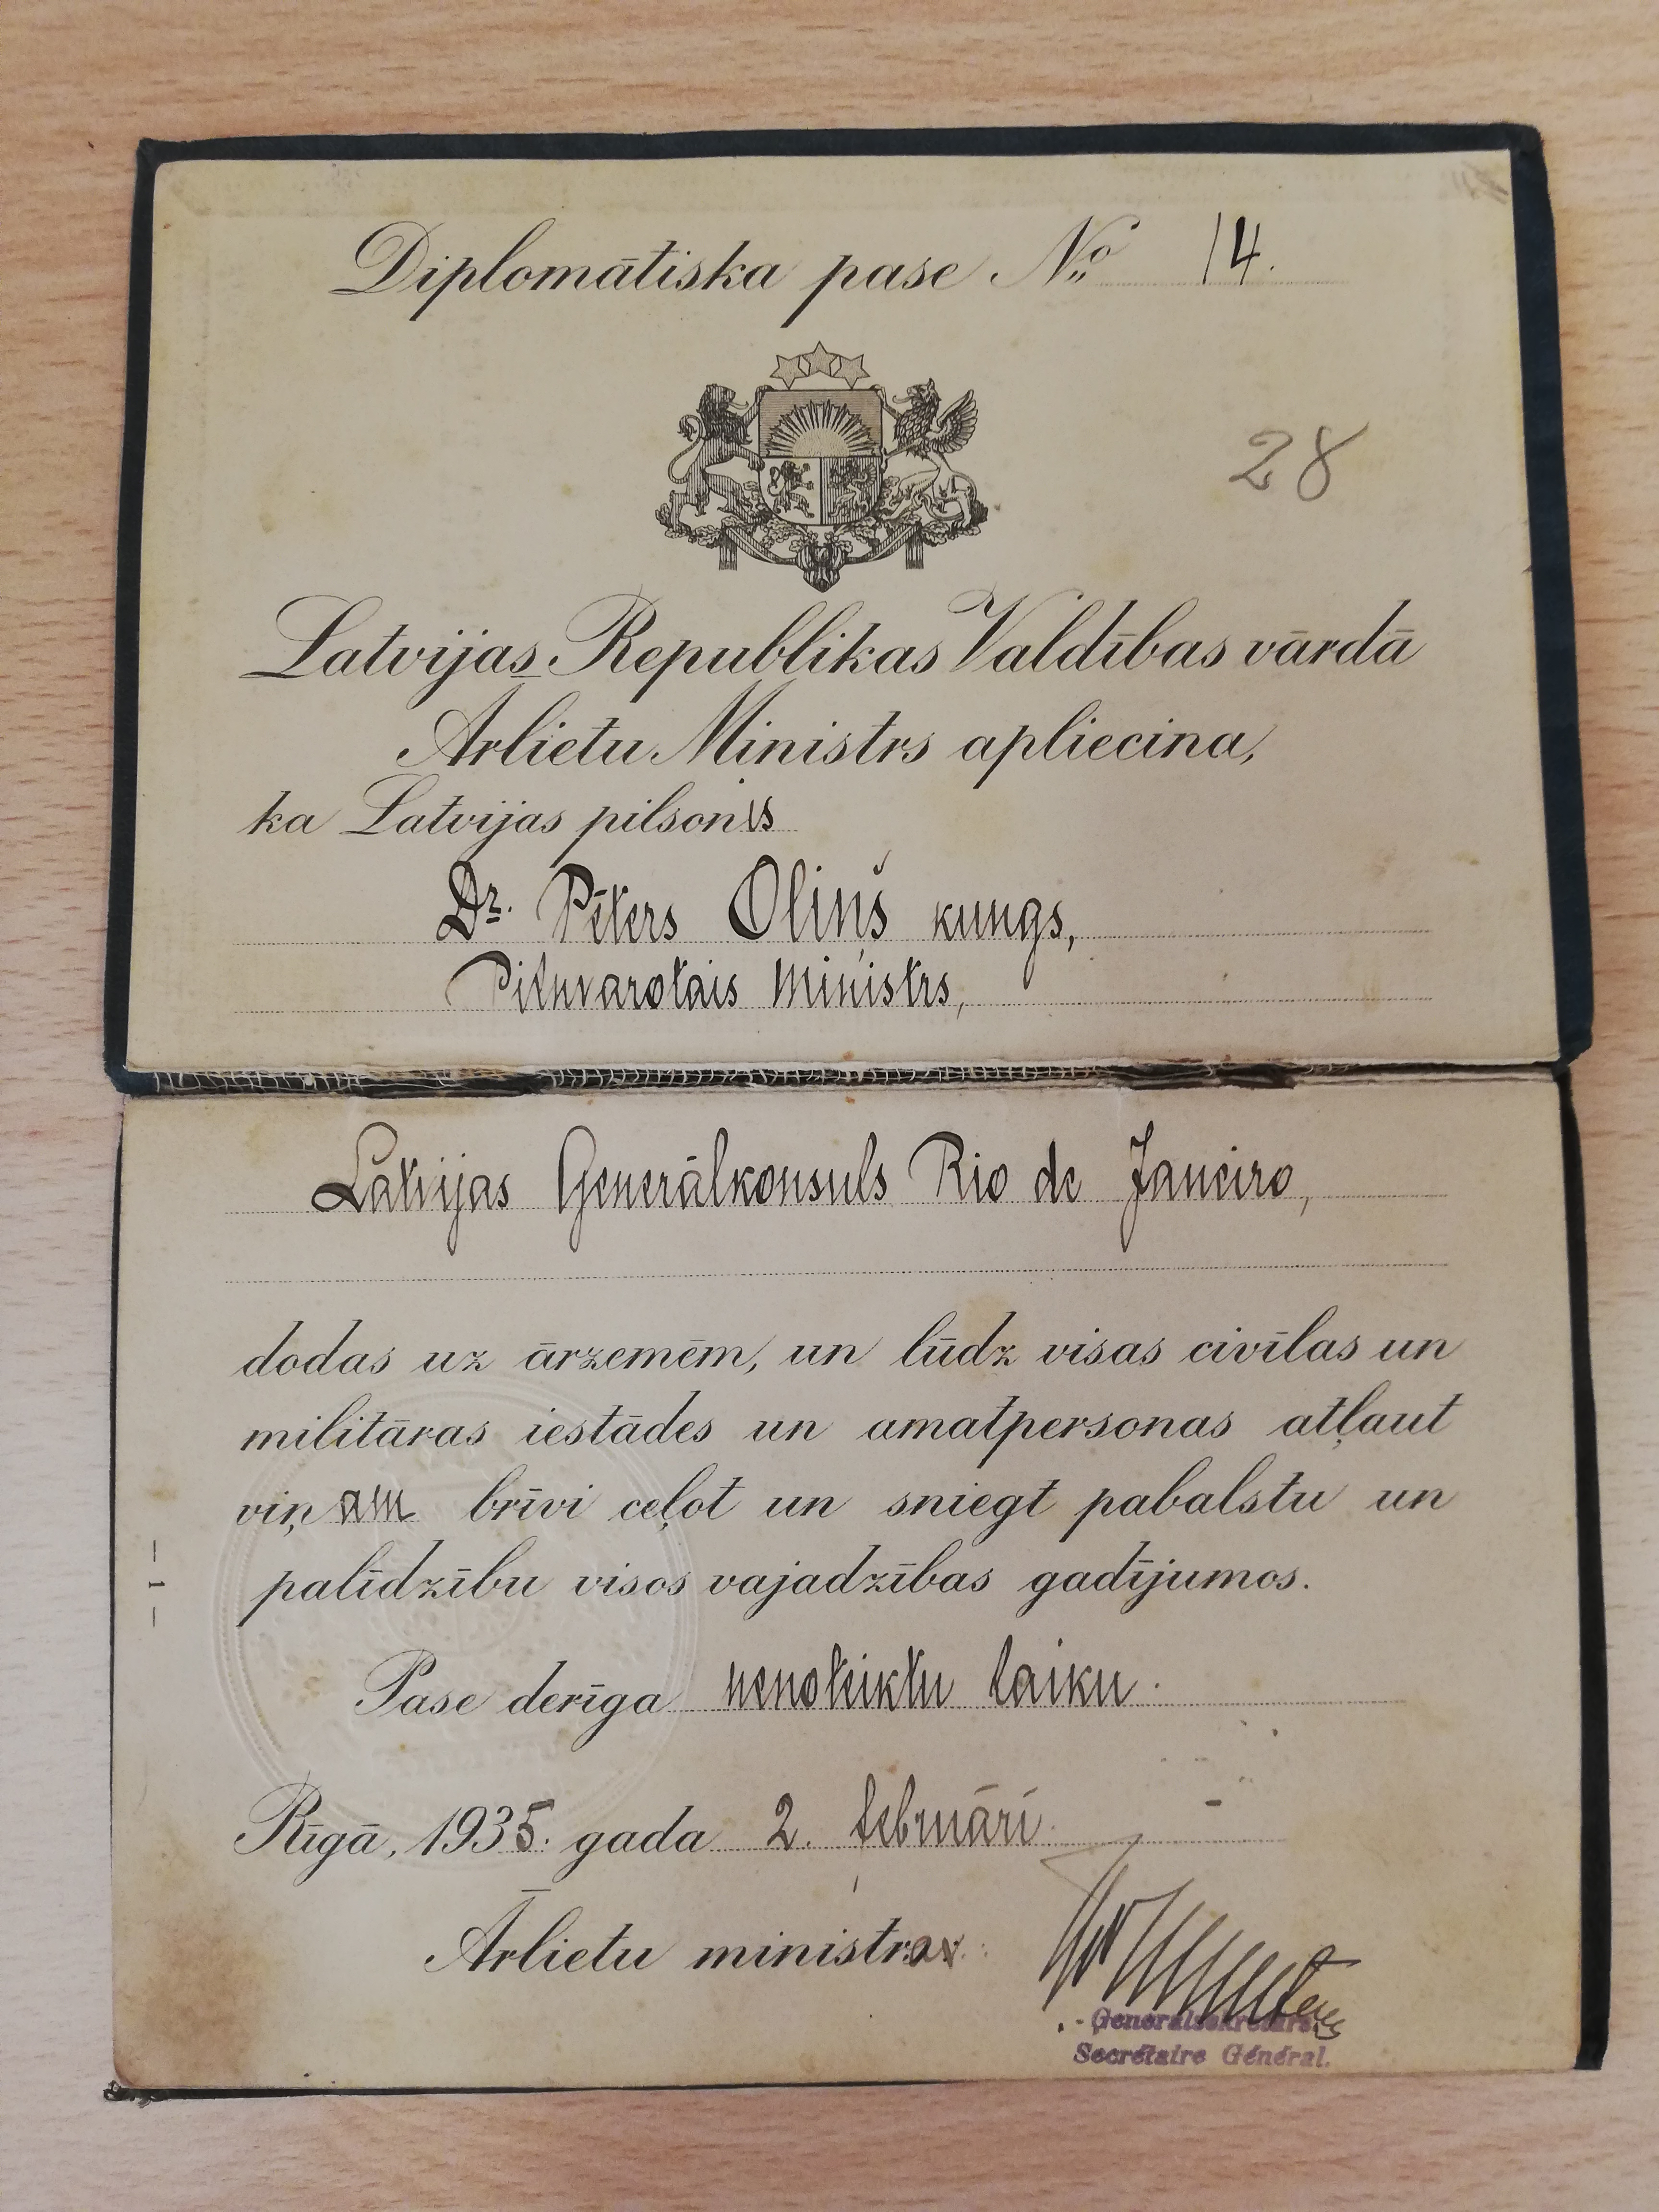 Diplomātiska pase № 14.
28
Latvijas Republikas Valdības vārdā
Ārlietu Ministrs apliecina,
ka Latvijas pilsonis
Dr. Pēters Oliņš kungs,
Pilnvarotais Ministrs,
Latvijas Ģenerālkonsuls Rio de Janeiro,
dodas uz ārzemēm, un lūdz visas civīlas un
militāras iestādes un amatpersonas atļaut
viņam brīvi ceļot un sniegt pabalstu un
palīdzību visos vajadzības gadījumos.
Pase derīga nenoteiktu laiku.
Rīgā, 1935. gada 2. februārī.
Ārlietu ministra v.
Ģenerālsekretārs.
Secrétaire Général.
- 1 -